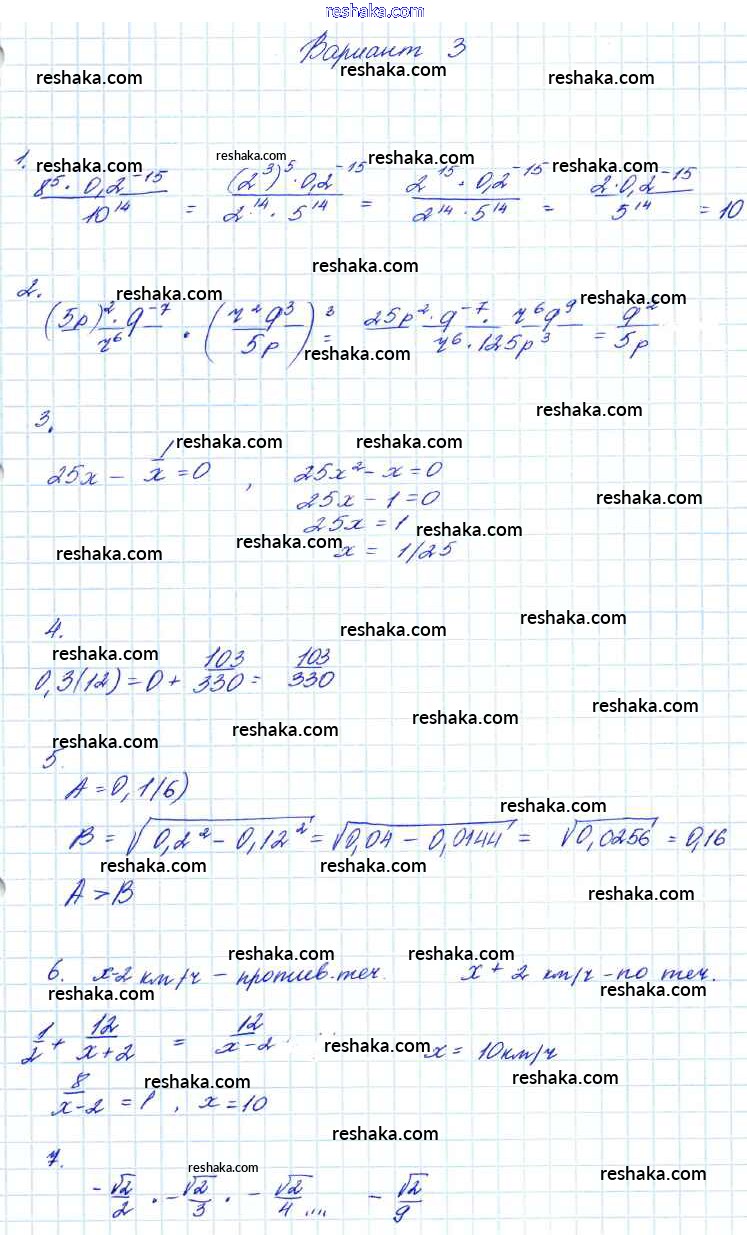 reshaka.com
Вариант 3
reshaka.com reshaka.com reshaka.com
1. 8⁵ · 0,2⁻¹⁵ / 10¹⁴ = (2³)⁵ · 0,2⁻¹⁵ / 2¹⁴ · 5¹⁴ = 2¹⁵ · 0,2⁻¹⁵ / 2¹⁴ · 5¹⁴ = 2 · 0,2⁻¹⁵ / 5¹⁴ = 10
reshaka.com reshaka.com reshaka.com reshaka.com
reshaka.com
2.
reshaka.com reshaka.com
(5p)² · q⁻⁷ / r⁶ · (r² q³ / 5p)³ = 25p² · q⁻⁷ · r⁶q⁹ / r⁶ · 125p³ = q² / 5p
reshaka.com
3.
reshaka.com reshaka.com
25x - 1/x = 0 , 25x² - x = 0
25x - 1 = 0 reshaka.com
25x = 1 reshaka.com
reshaka.com reshaka.com
x = 1/25
4.
reshaka.com reshaka.com
reshaka.com
0,3(12) = 0 + 103/330 = 103/330
reshaka.com reshaka.com reshaka.com
reshaka.com
5.
A = 0,1(6)
reshaka.com
B = √0,2² - 0,12² = √0,04 - 0,0144 = √0,0256 = 0,16
reshaka.com reshaka.com
A > B reshaka.com
reshaka.com reshaka.com
6. x-2 км/ч - против. теч. x + 2 км/ч - по теч.
reshaka.com reshaka.com
1/2 + 12/x+2 = 12/x-2
reshaka.com x = 10 км/ч
reshaka.com reshaka.com
8/x-2 = 1 , x = 10
reshaka.com
7.
reshaka.com reshaka.com
- √2/2 · - √2/3 · - √2/4 .... - √2/9